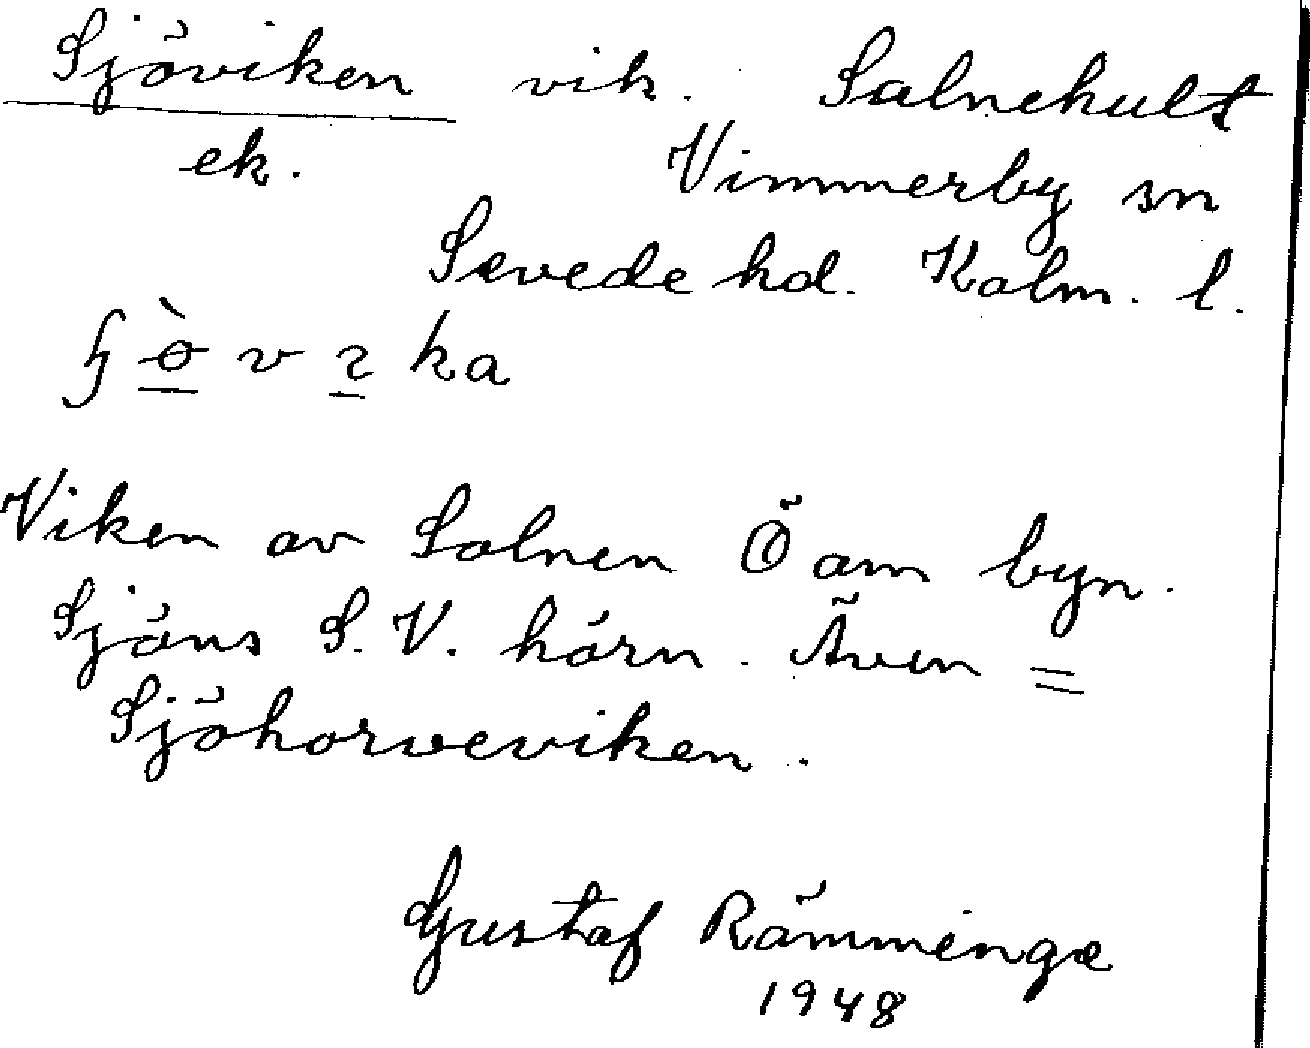 Sjöviken vik. Salnehult
ek. Vimmerby sn
Sevede hd. Kalm. l.
Viken av Solnen Ö om byn.
Sjöns S.V. hörn. Även =
Sjöhorveviken.
Gustaf Rämminge
1948